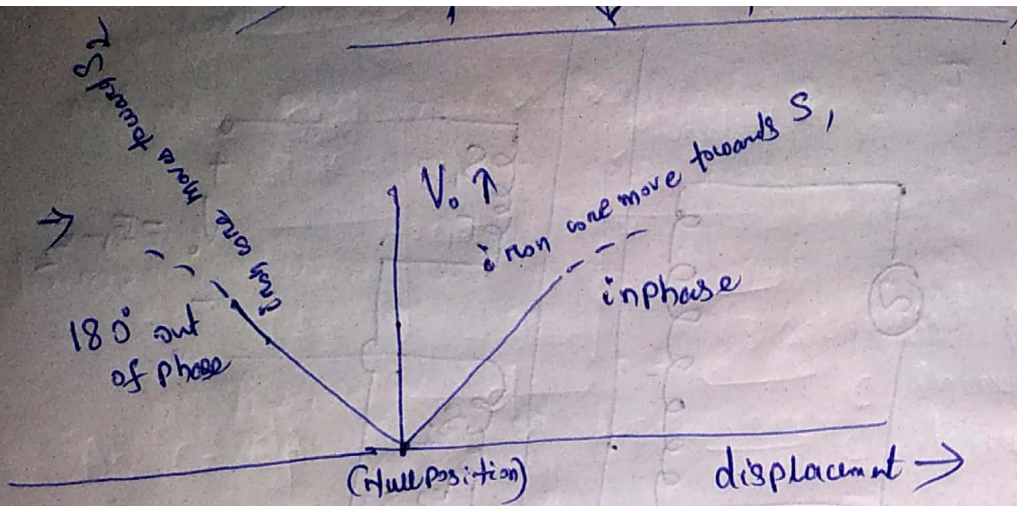 iron core moves towards S2
V₀ ↑
iron core move towards S,
inphase
180° out
of phase
(Null position)
displacement →